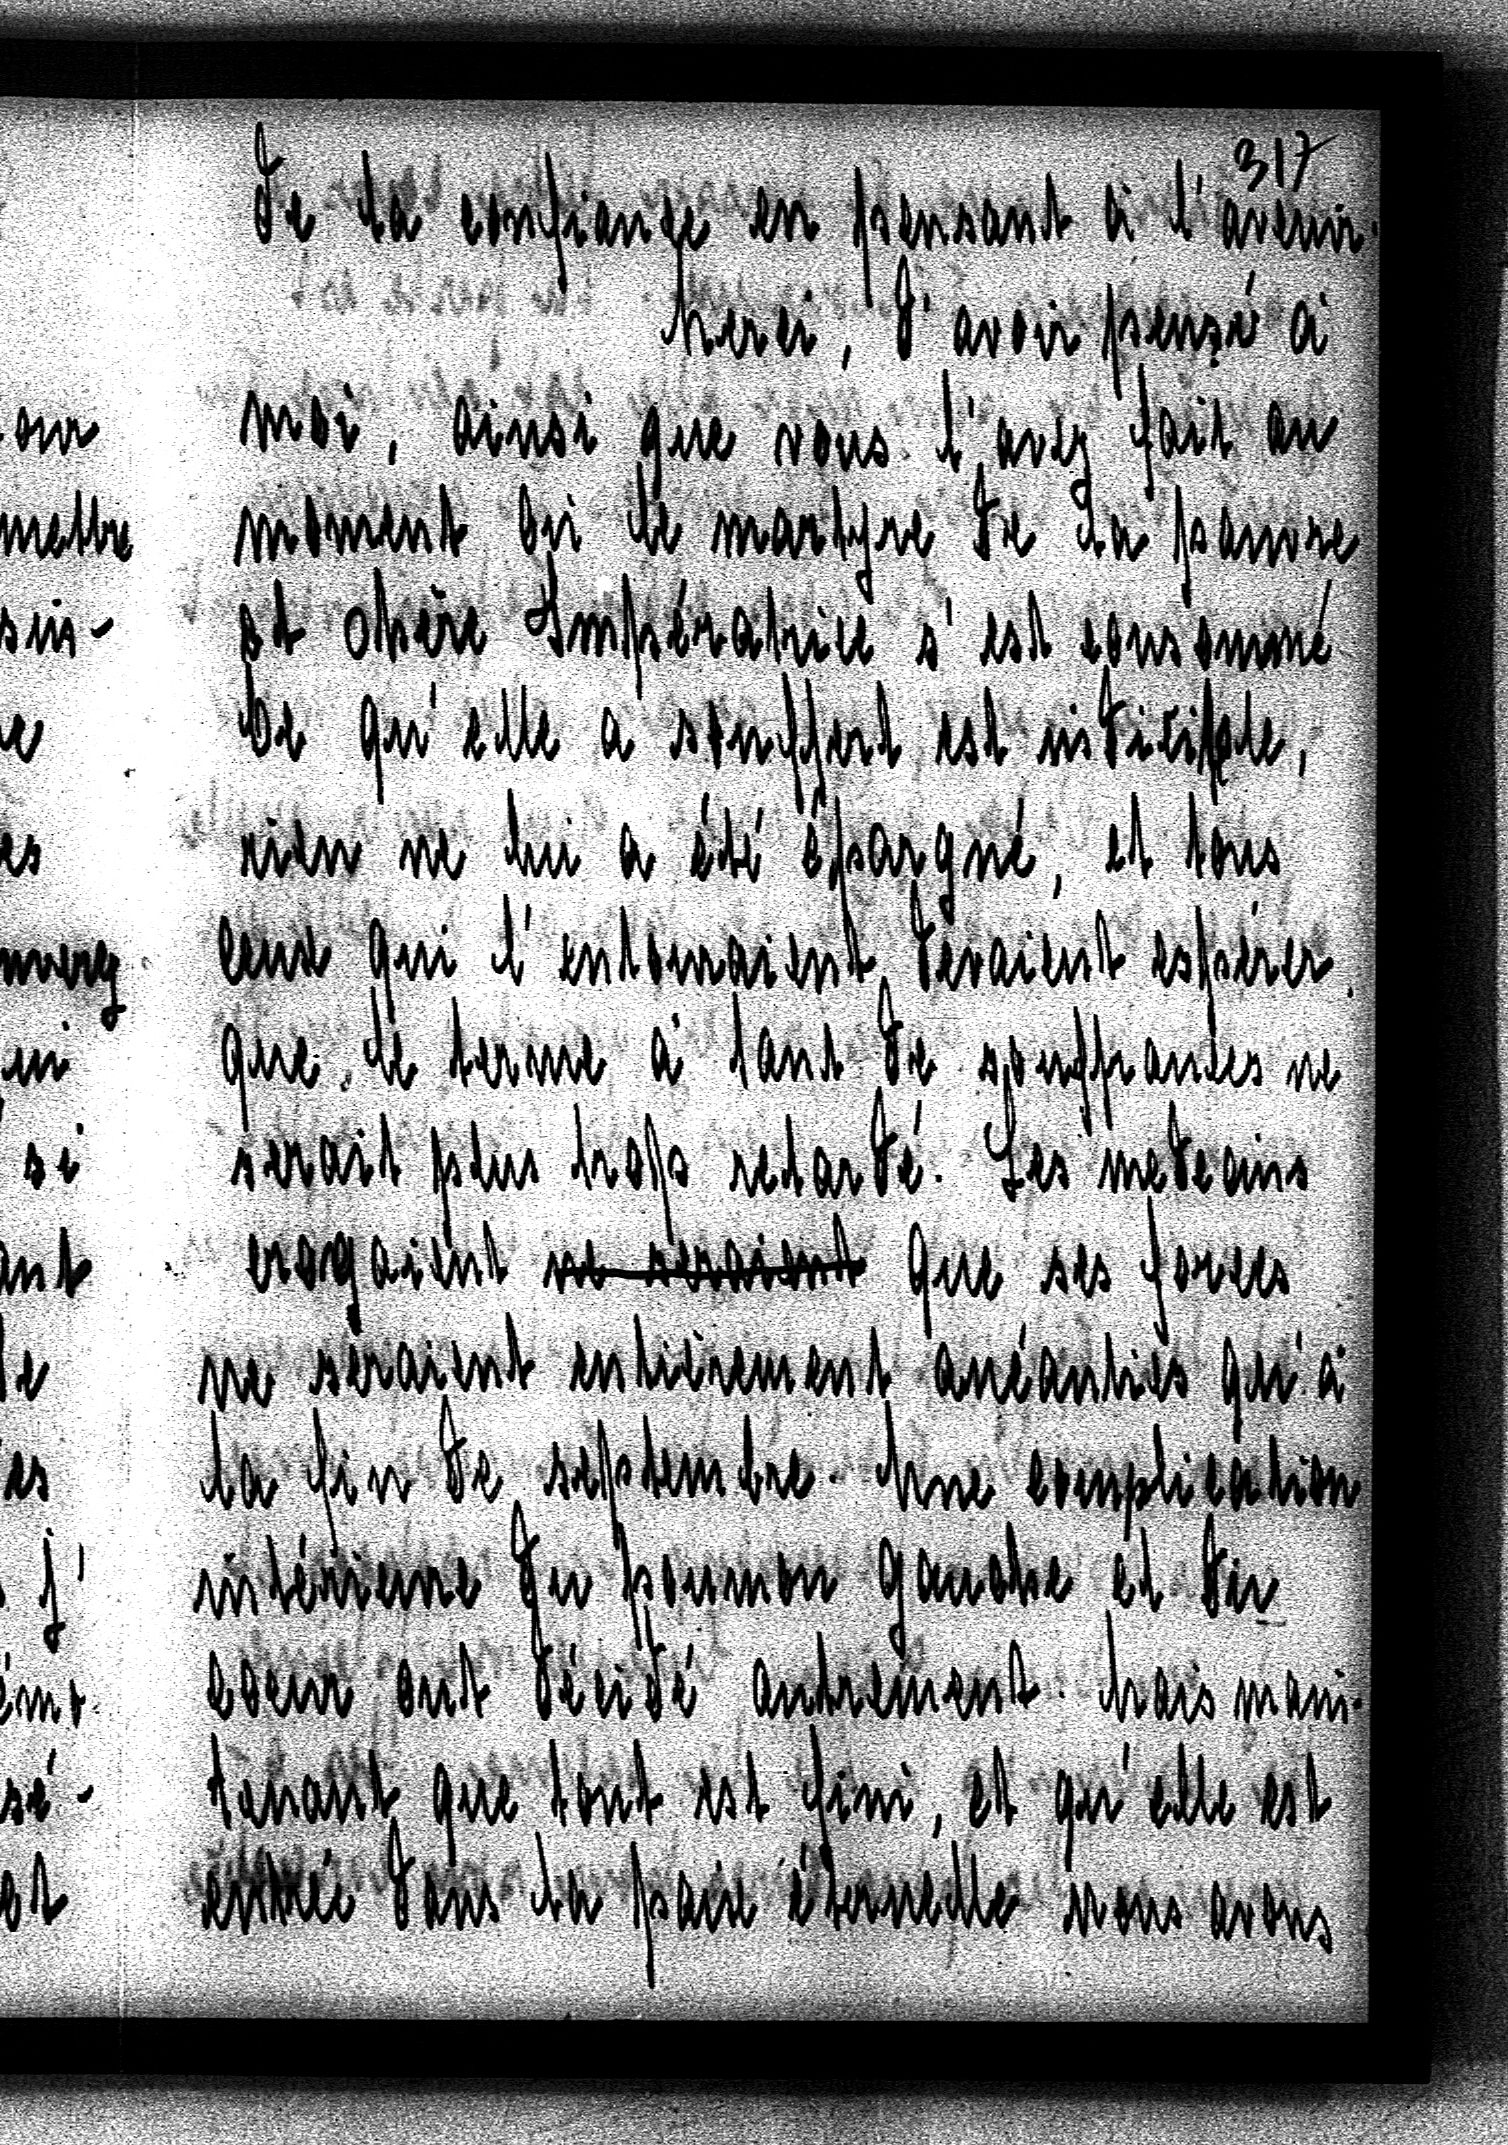 317
de la confiance en pensant à l'avenir.
Merci, d'avoir pensé à
moi, ainsi que vous l'avez fait au
moment où le martyre de la pauvre
et chère Impératrice s'est consommé
Ce qu'elle a souffert est indicible,
rien ne lui a été épargné, et tous
ceux qui l'entouraient devaient espérer
que le terme à tant de souffrances ne
serait plus trop retardé. Les medecins
croyaient ne seraient que ses forces
ne seraient entièrement anéanties qu'à
la fin de septembre. Une complication
intérieure du poumon gauche et du
coeur ont décidé autrement. Mais main-
tenant que tout est fini, et qu'elle est
entrée dans la paix éternelle nous avons
our
mettre
sin-
es
si
ant
de
es
j'
sé-